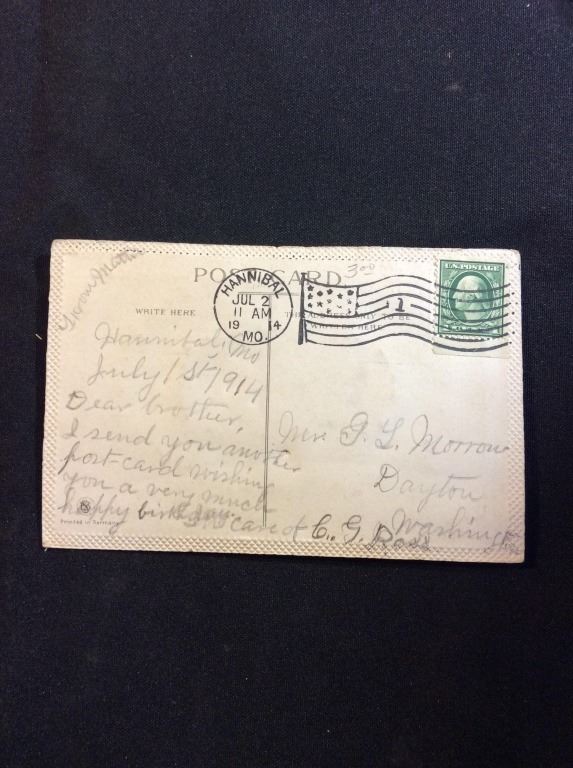 POST CARD.
3 00
HANNIBAL
JUL 2
11 AM
19 14
MO.
1
U.S. POSTAGE
WRITE HERE
TO BE
WRITTEN HERE
From
Hannibal, Mo
July 1st, 1914
Dear brother,
I send you another
post-card wishing
you a very much
happy birthday.
Mr. G. L. Morrow
Dayton
Washington
In care of C. G. Ross
Printed in Germany